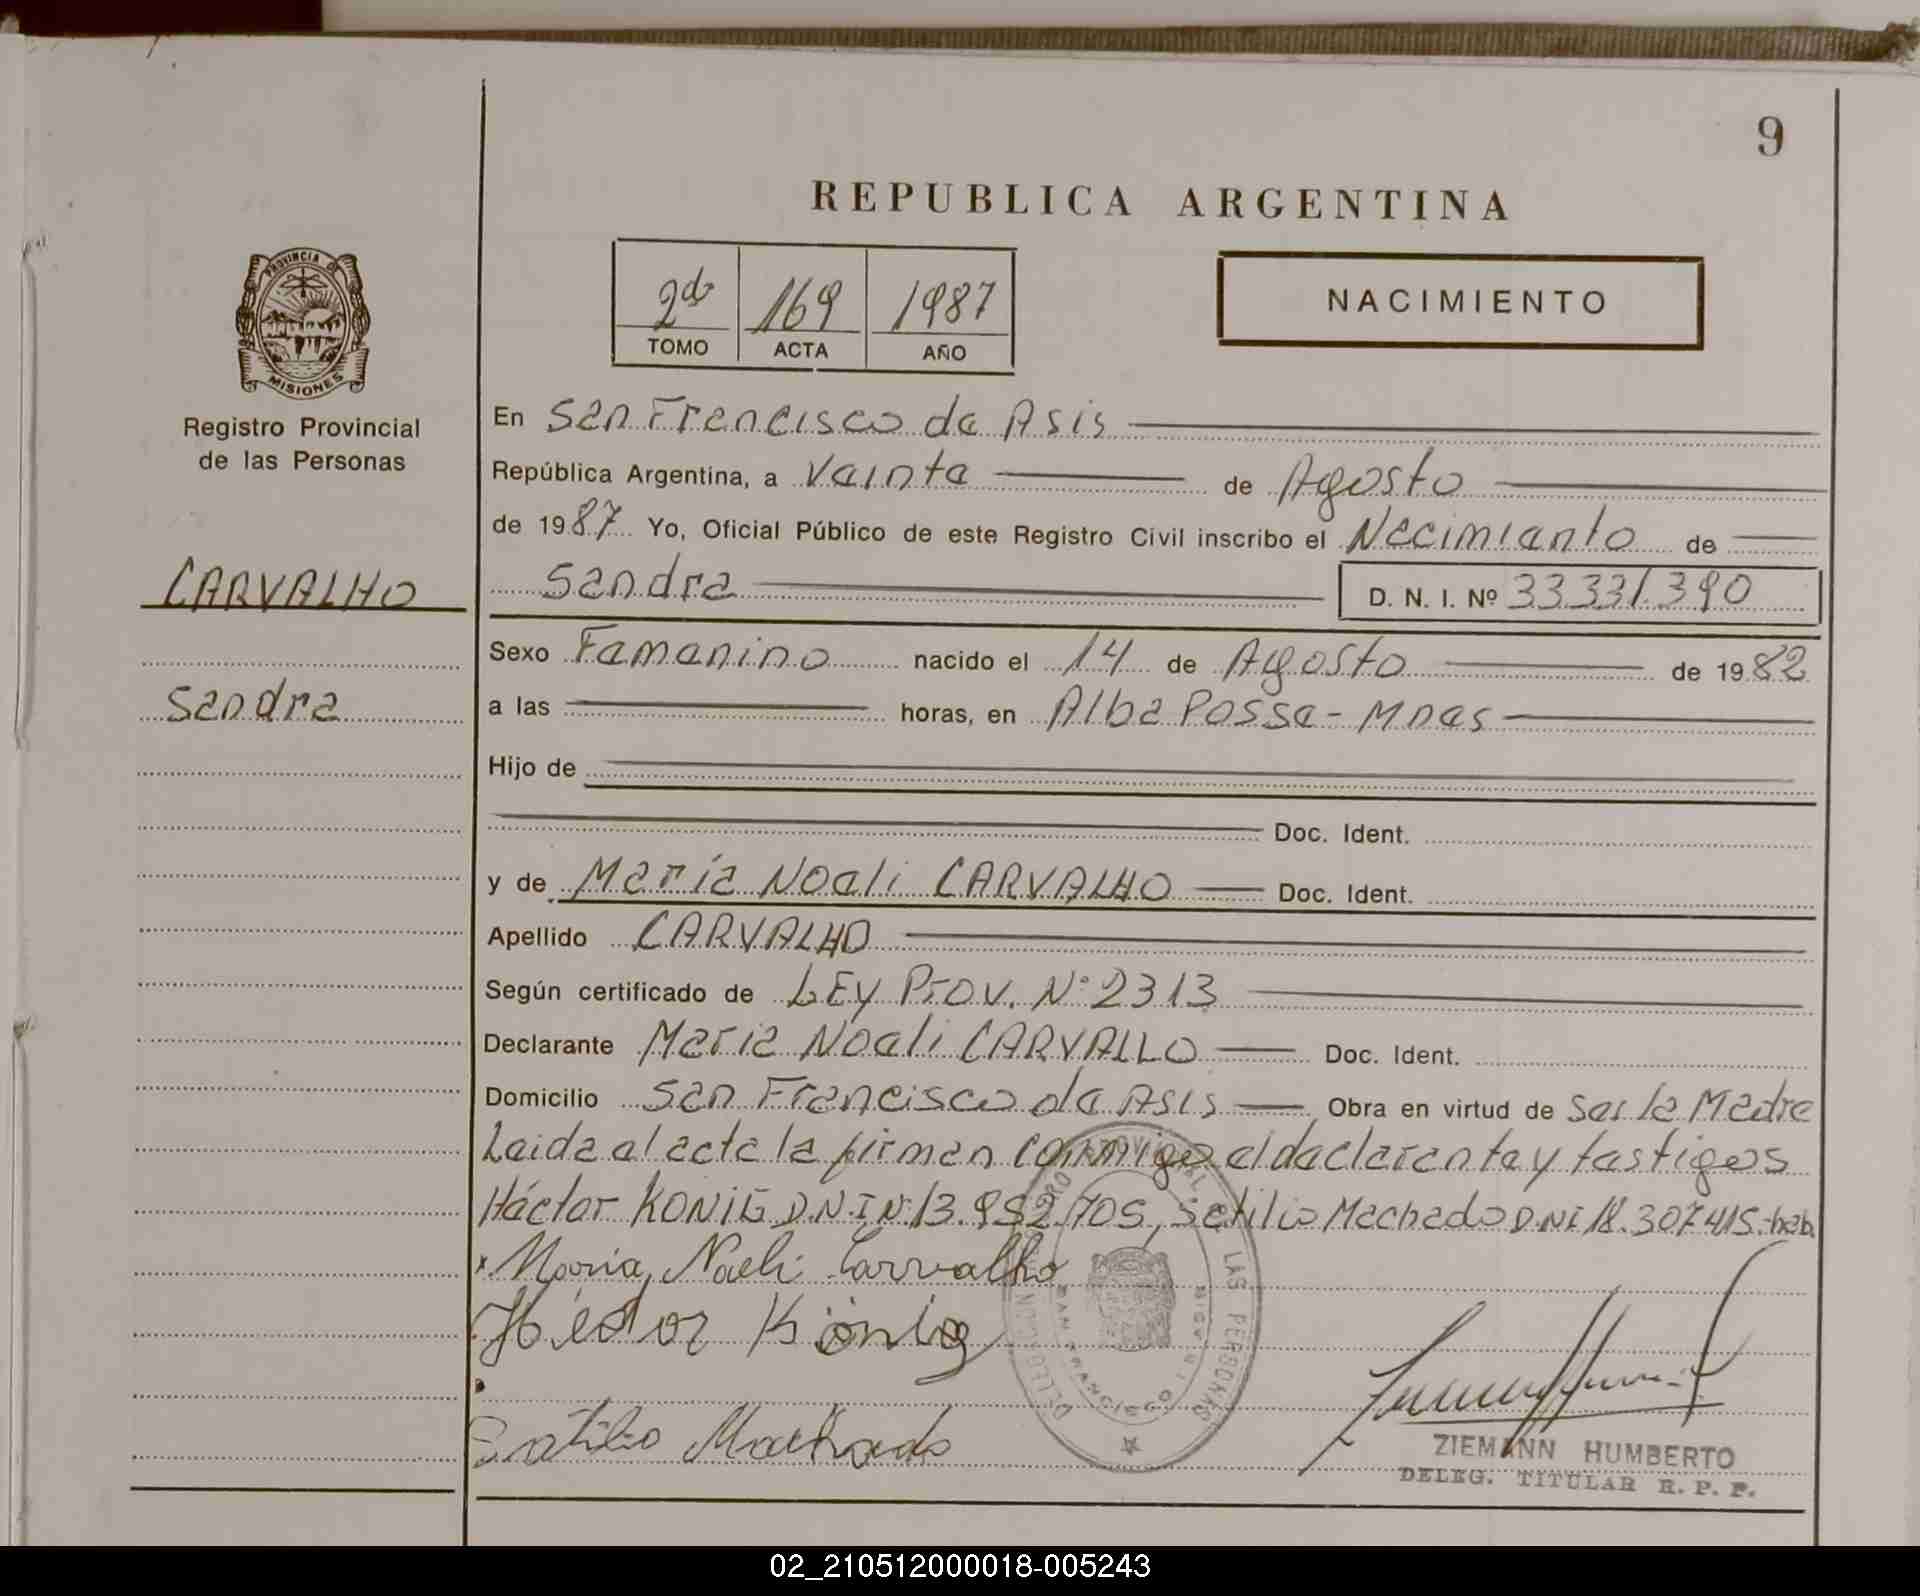 9
REPUBLICA ARGENTINA
2do 169 1987
TOMO ACTA AÑO
NACIMIENTO
PROVINCIA DE
MISIONES
Registro Provincial
de las Personas
CARVALHO
Sandra
En San Francisco de Asis
República Argentina, a Veinte de Agosto
de 1987 Yo, Oficial Público de este Registro Civil inscribo el Nacimiento de
Sandra D. N. I. Nº 33331.390
Sexo Femenino nacido el 14 de Agosto de 1982
a las horas, en Alba Posse - Mnes
Hijo de
Doc. Ident.
y de María Noeli CARVALHO Doc. Ident.
Apellido CARVALHO
Según certificado de LEY Prov. Nº 2313
Declarante Maria Noeli CARVALLO Doc. Ident.
Domicilio San Francisco de Asis Obra en virtud de Ser la Madre
Leida el acta la firman conmigo el declarante y testigos
Héctor KONIG D.N.I Nº 13.952.705, Satilio Machado D.N.I 18.307.415.-hab.
Maria Noeli Carvalho
Héctor König
Satilio Machado
DELEGACION REGISTRO PROVINCIAL DE LAS PERSONAS
SAN FRANCISCO
ZIEMANN HUMBERTO
DELEG. TITULAR R. P. P.
02_210512000018-005243